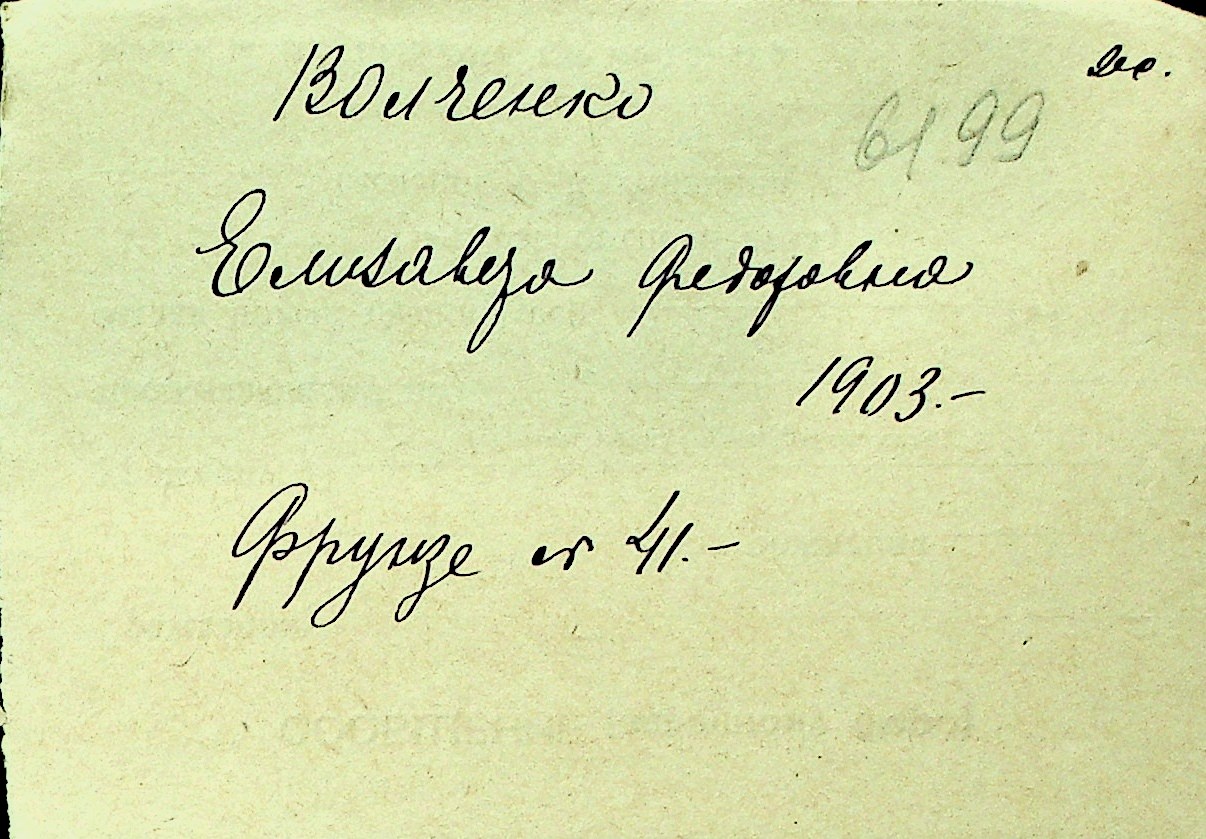 Волченко
6199
Елизавета Федоровна
1903.-
Фрунзе 41.-